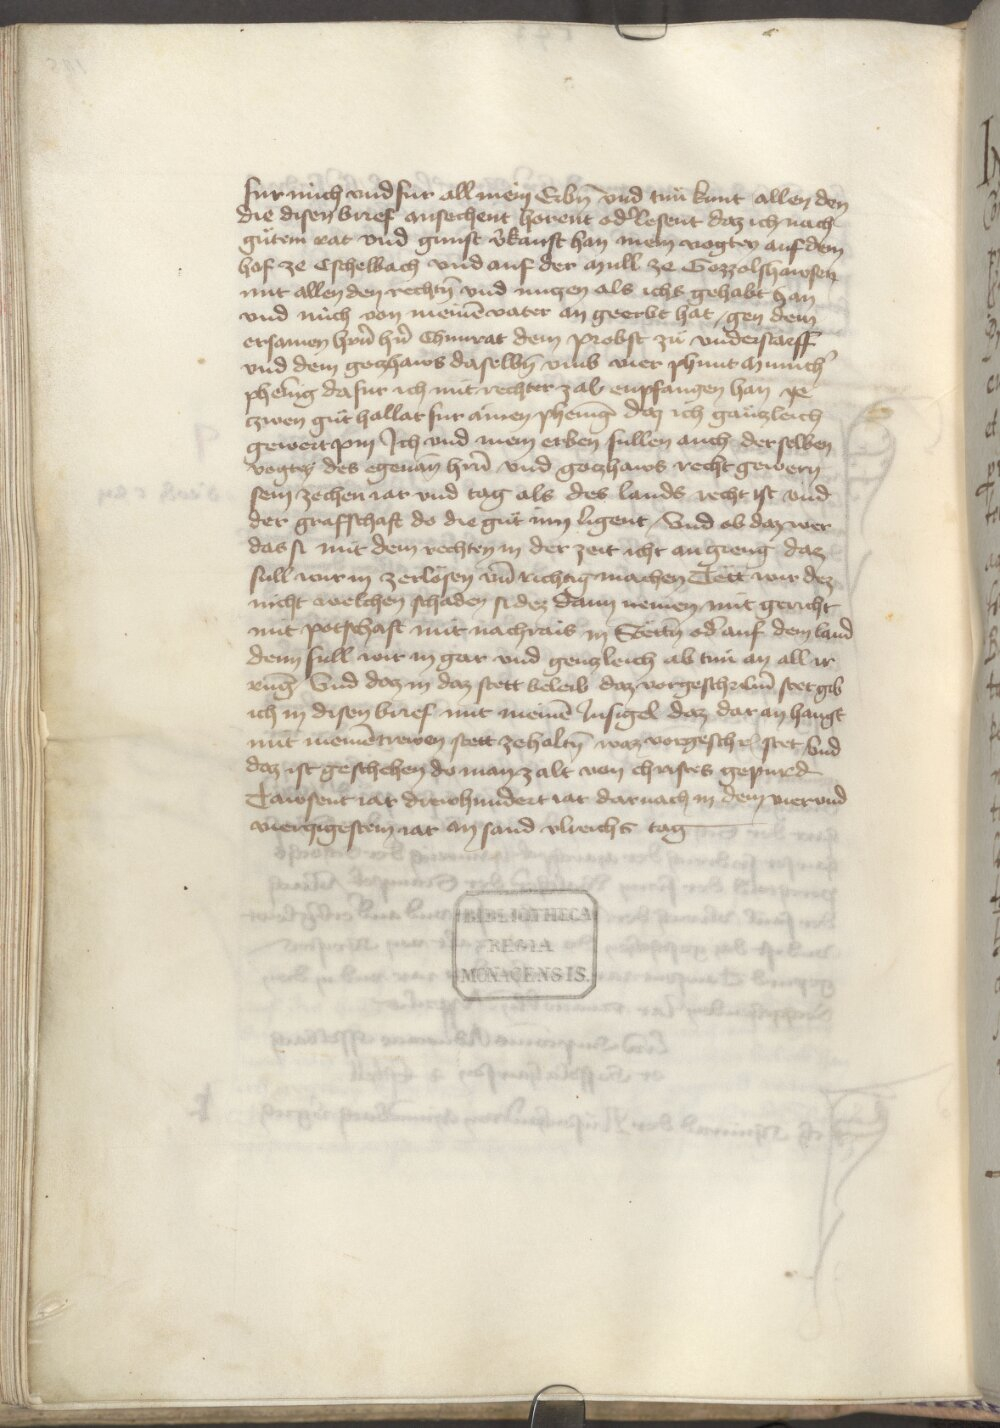 fur mich vnd fur all mein Erbn̄ vnd tuͤn kunt allen den
die disen brief ansechent horent od̓ lesent daz ich nach
gutem rat vnd gunst v̓kauft han mein vogtey auf dem
hof ze Eschelbach vnd auf der Mull ze Gozzolshawsen
mit allen den rechtn̄ vnd nuczen als ichs gehabt han
vnd mich von meinē vater an geerbt hat / gen dem
ersamen hrn̄ hn̄ Chunrat dem probst zu vnderstarff
vnd dem goczhaws daselbn̄ vmb vier phunt Munich̓
phenig da fur ich mit rechter zal enpfangen han ye
zwen gut hallar fur ainen phenig daz ich gänzleich
gewert pin Ich vnd mein erben sullen auch der selben
vogtey des egenan̄ hrn̄ vnd goczhaws recht gewern
sein zechen iar vnd tag als des lands recht ist vnd
der graffschaft do die gut inn ligent / Vnd ob daz wer
das si mit dem rechten in der zeit icht an gieng daz
sull wir in zerlosen vn̄ richtig machen Tett wir dez
nicht welchen schaden si dez dann nemen mit gericht
mit potschaft mit nachrais in Stetn̄ od̓ auf dem land
denn sull wir in gar vnd genzleich ab tuͤn an all ir
Vnd daz in daz stett beleib daz vorgeschribn̄ stet gib
ich in disen brief mit meinē Insigel daz dar an hangt
mit meinē trewen stett zehaltn̄ waz vorgeschr̄ stet / Vnd
daz ist geschehen do man zalt von christes gepurd
Tawsent iar drewhundert iar darnach in dem vier vnd
vierczigestem iar An sand vlreichs tag
BIBLIOTHECA
REGIA
MONACENSIS.